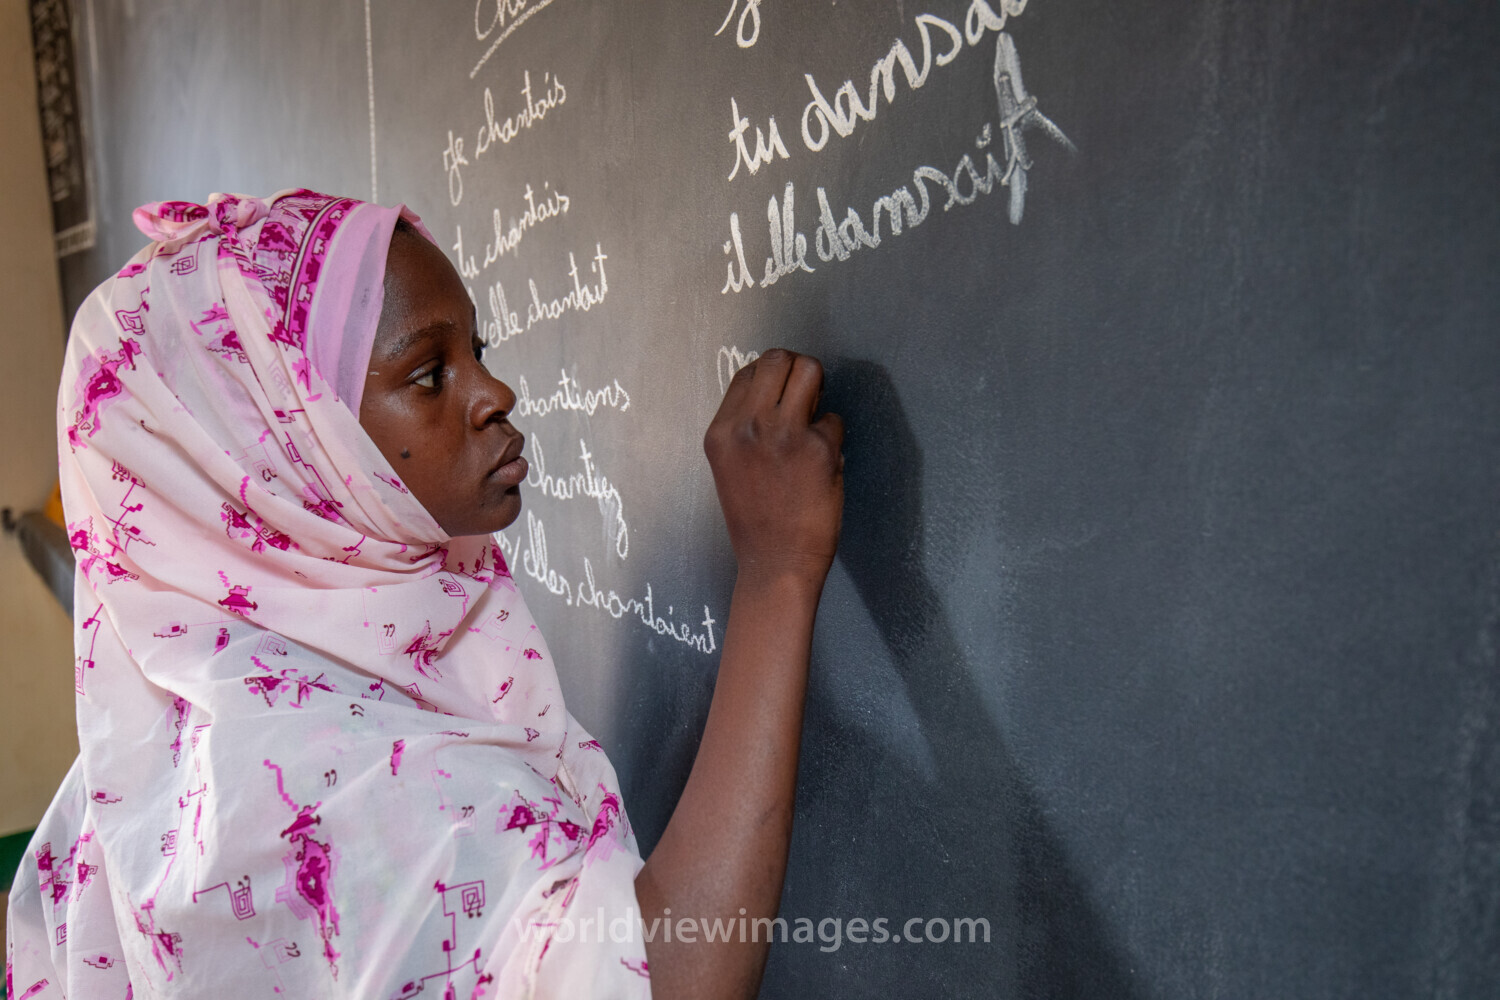 je chantais
tu chantais
/elle chantait
chantions
chantiez
/elles chantaient
tu dansais
il elle dansait
worldviewimages.com